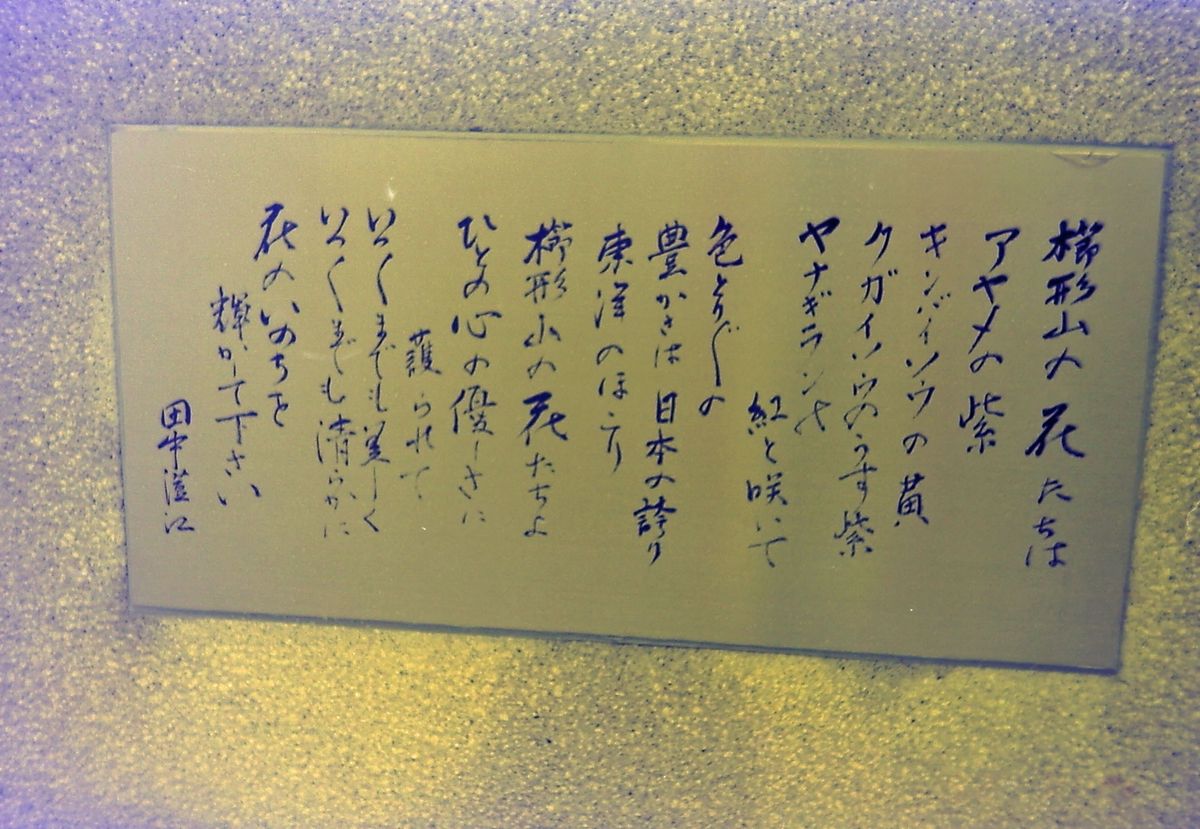 櫛形山の花たちは
アヤメの紫
キンバイソウの黄
クガイソウのうす紫
ヤナギランの
紅と咲いて
色とりどりの
豊かさは日本の誇り
東洋のほこり
櫛形山の花たちよ
ひとの心の優しさに
護られて
いつまでも美しく
いつまでも清らかに
花のいのちを
輝かせて下さい
田中澄江